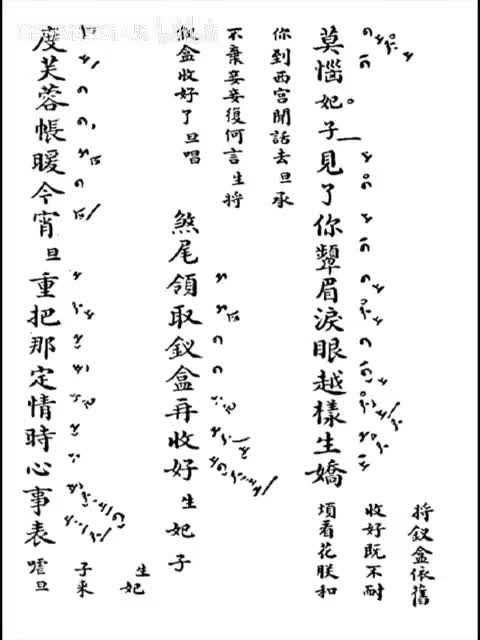 莫惱妃子見了你顰眉淚眼越樣生嬌
將釵盒依舊
收好既不耐
煩看花朕和
你到西宮閒話去旦承
不棄妾妾復何言生將
釵盒收好了旦唱
煞尾領取釵盒再收好生妃子
度芙蓉帳暖今宵旦重把那定情時心事表
生妃
子来
旦